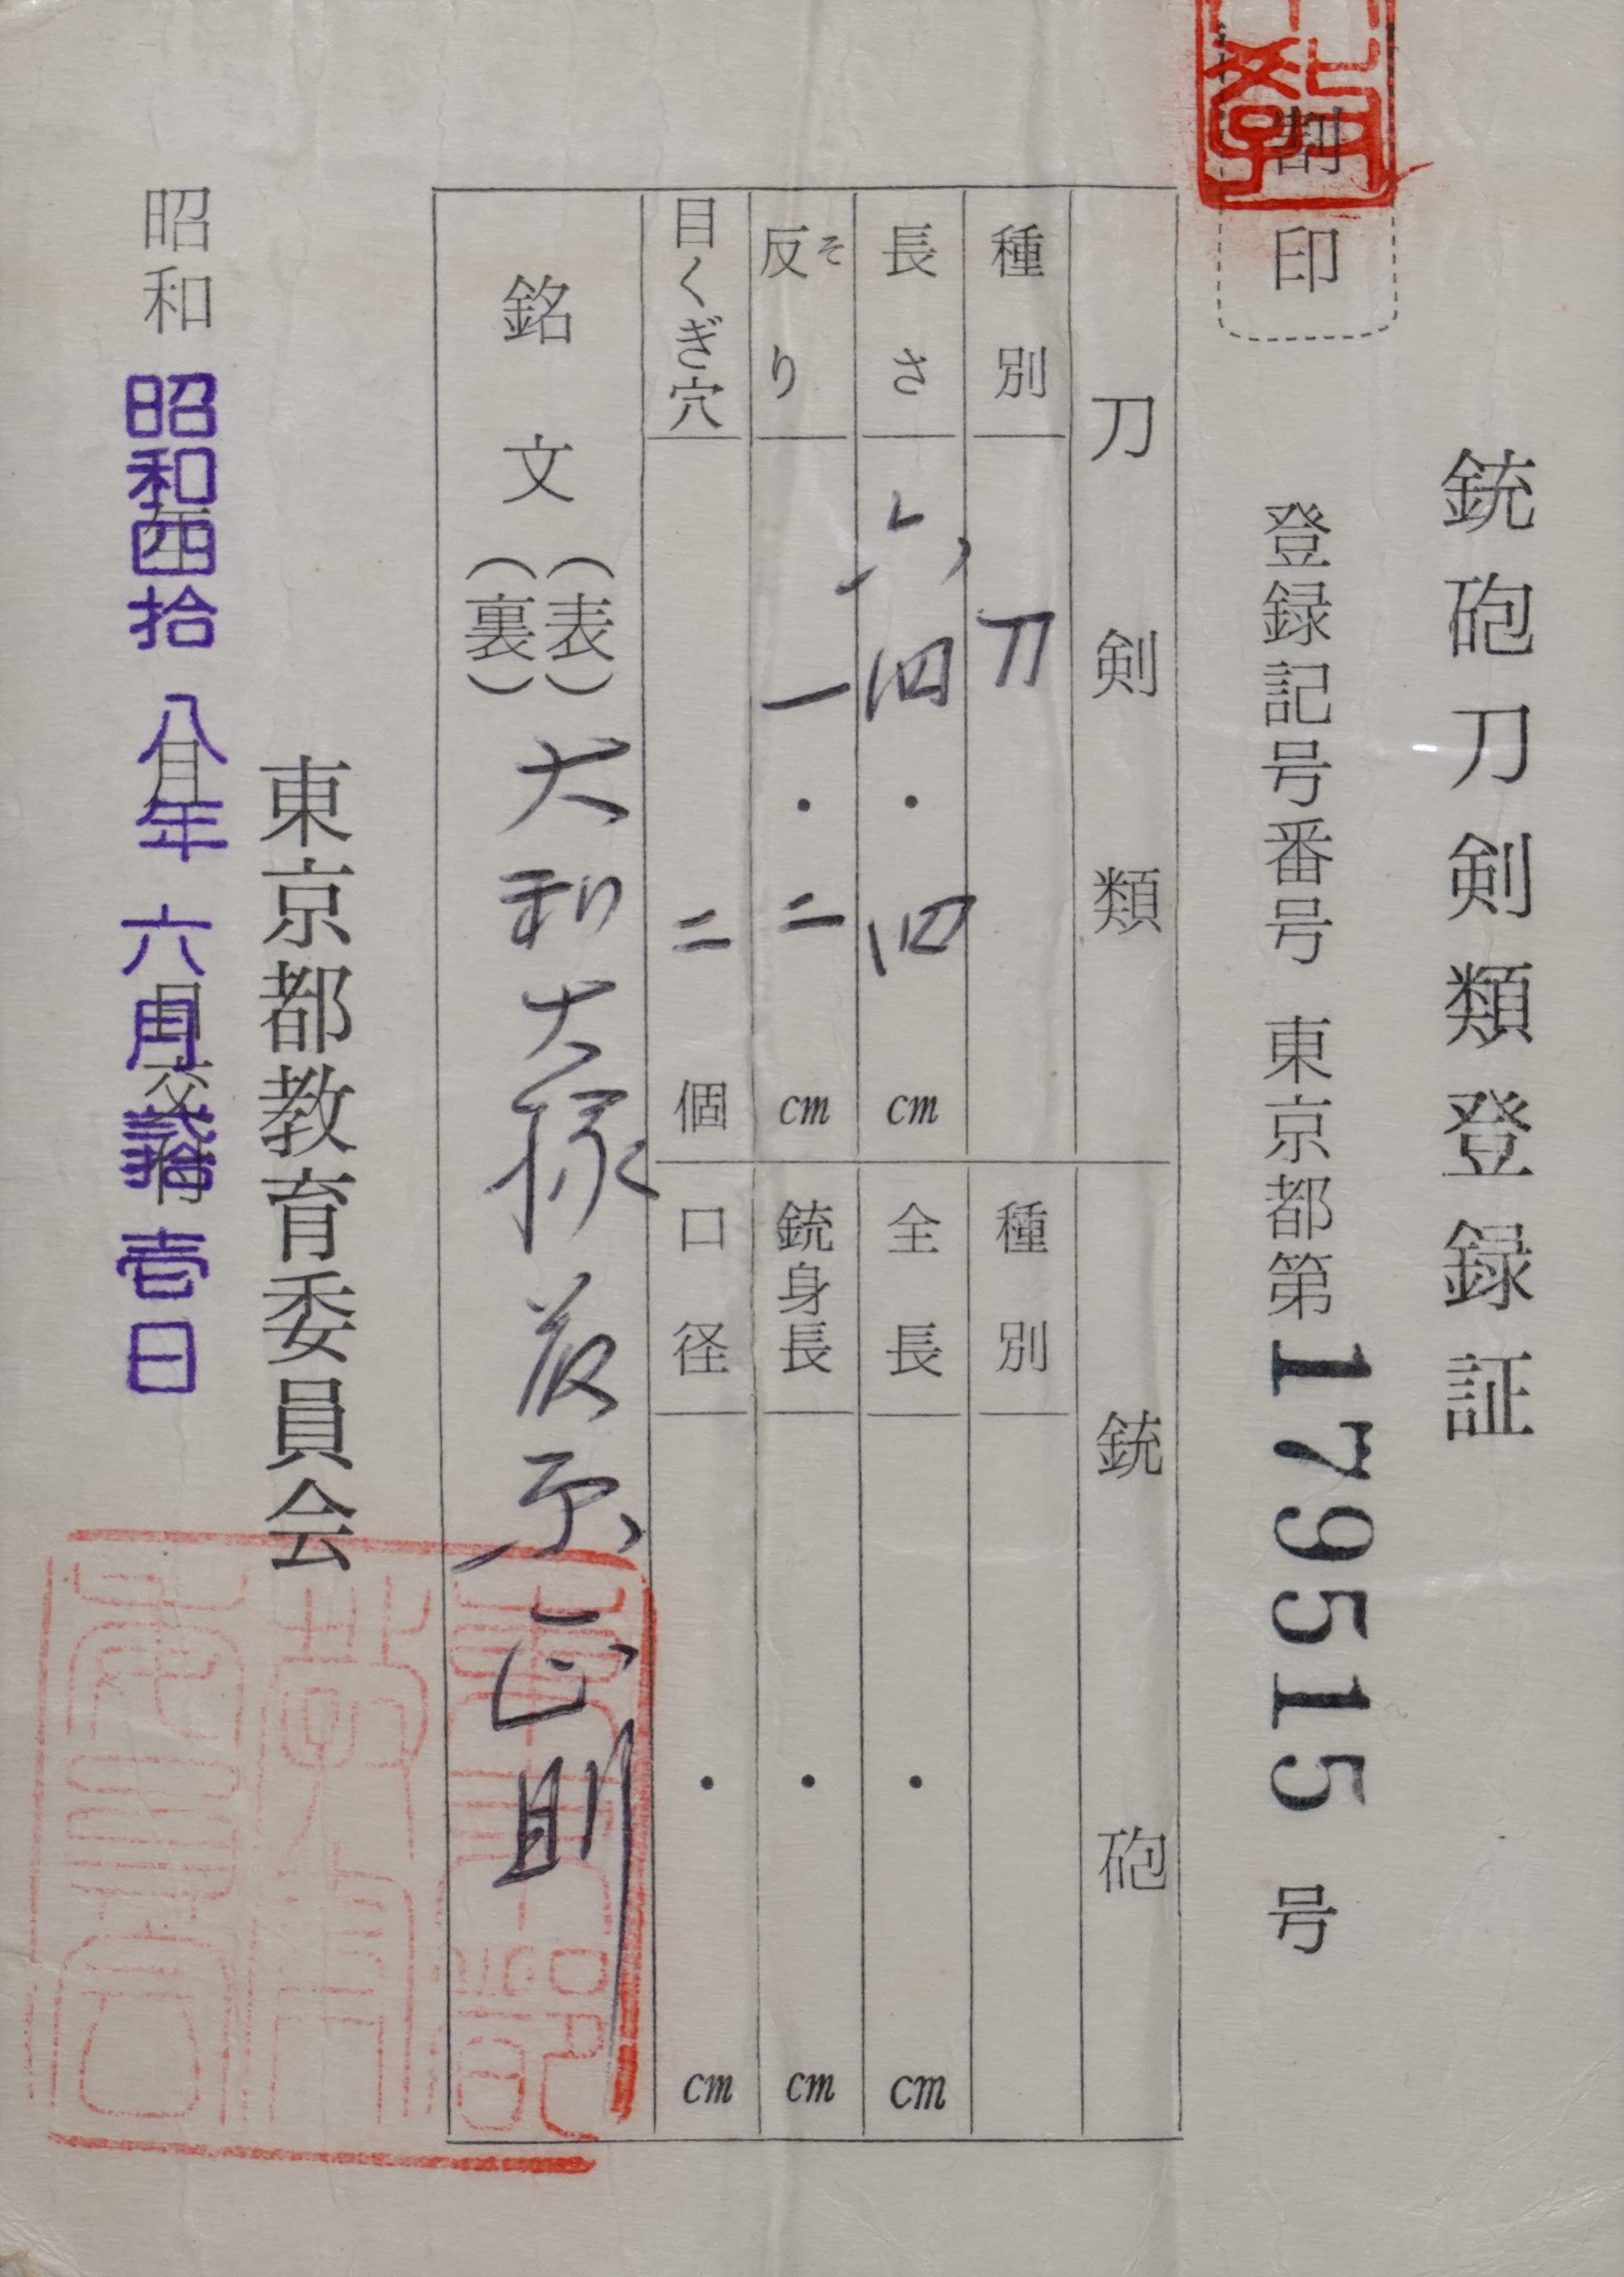 銃砲刀剣類登録証
割印
登録記号番号 東京都第179515号
刀剣類
種別 刀
長さ 六四・四 cm
反り そ 一・二 cm
目くぎ穴 二 個
銃砲
種別
全長 ・ cm
銃身長 ・ cm
口径 ・ cm
銘文（表）（裏）大和大掾藤原正則
東京都教育委員会
昭和 年 月 日交付
昭和四拾八年六月貳拾壱日